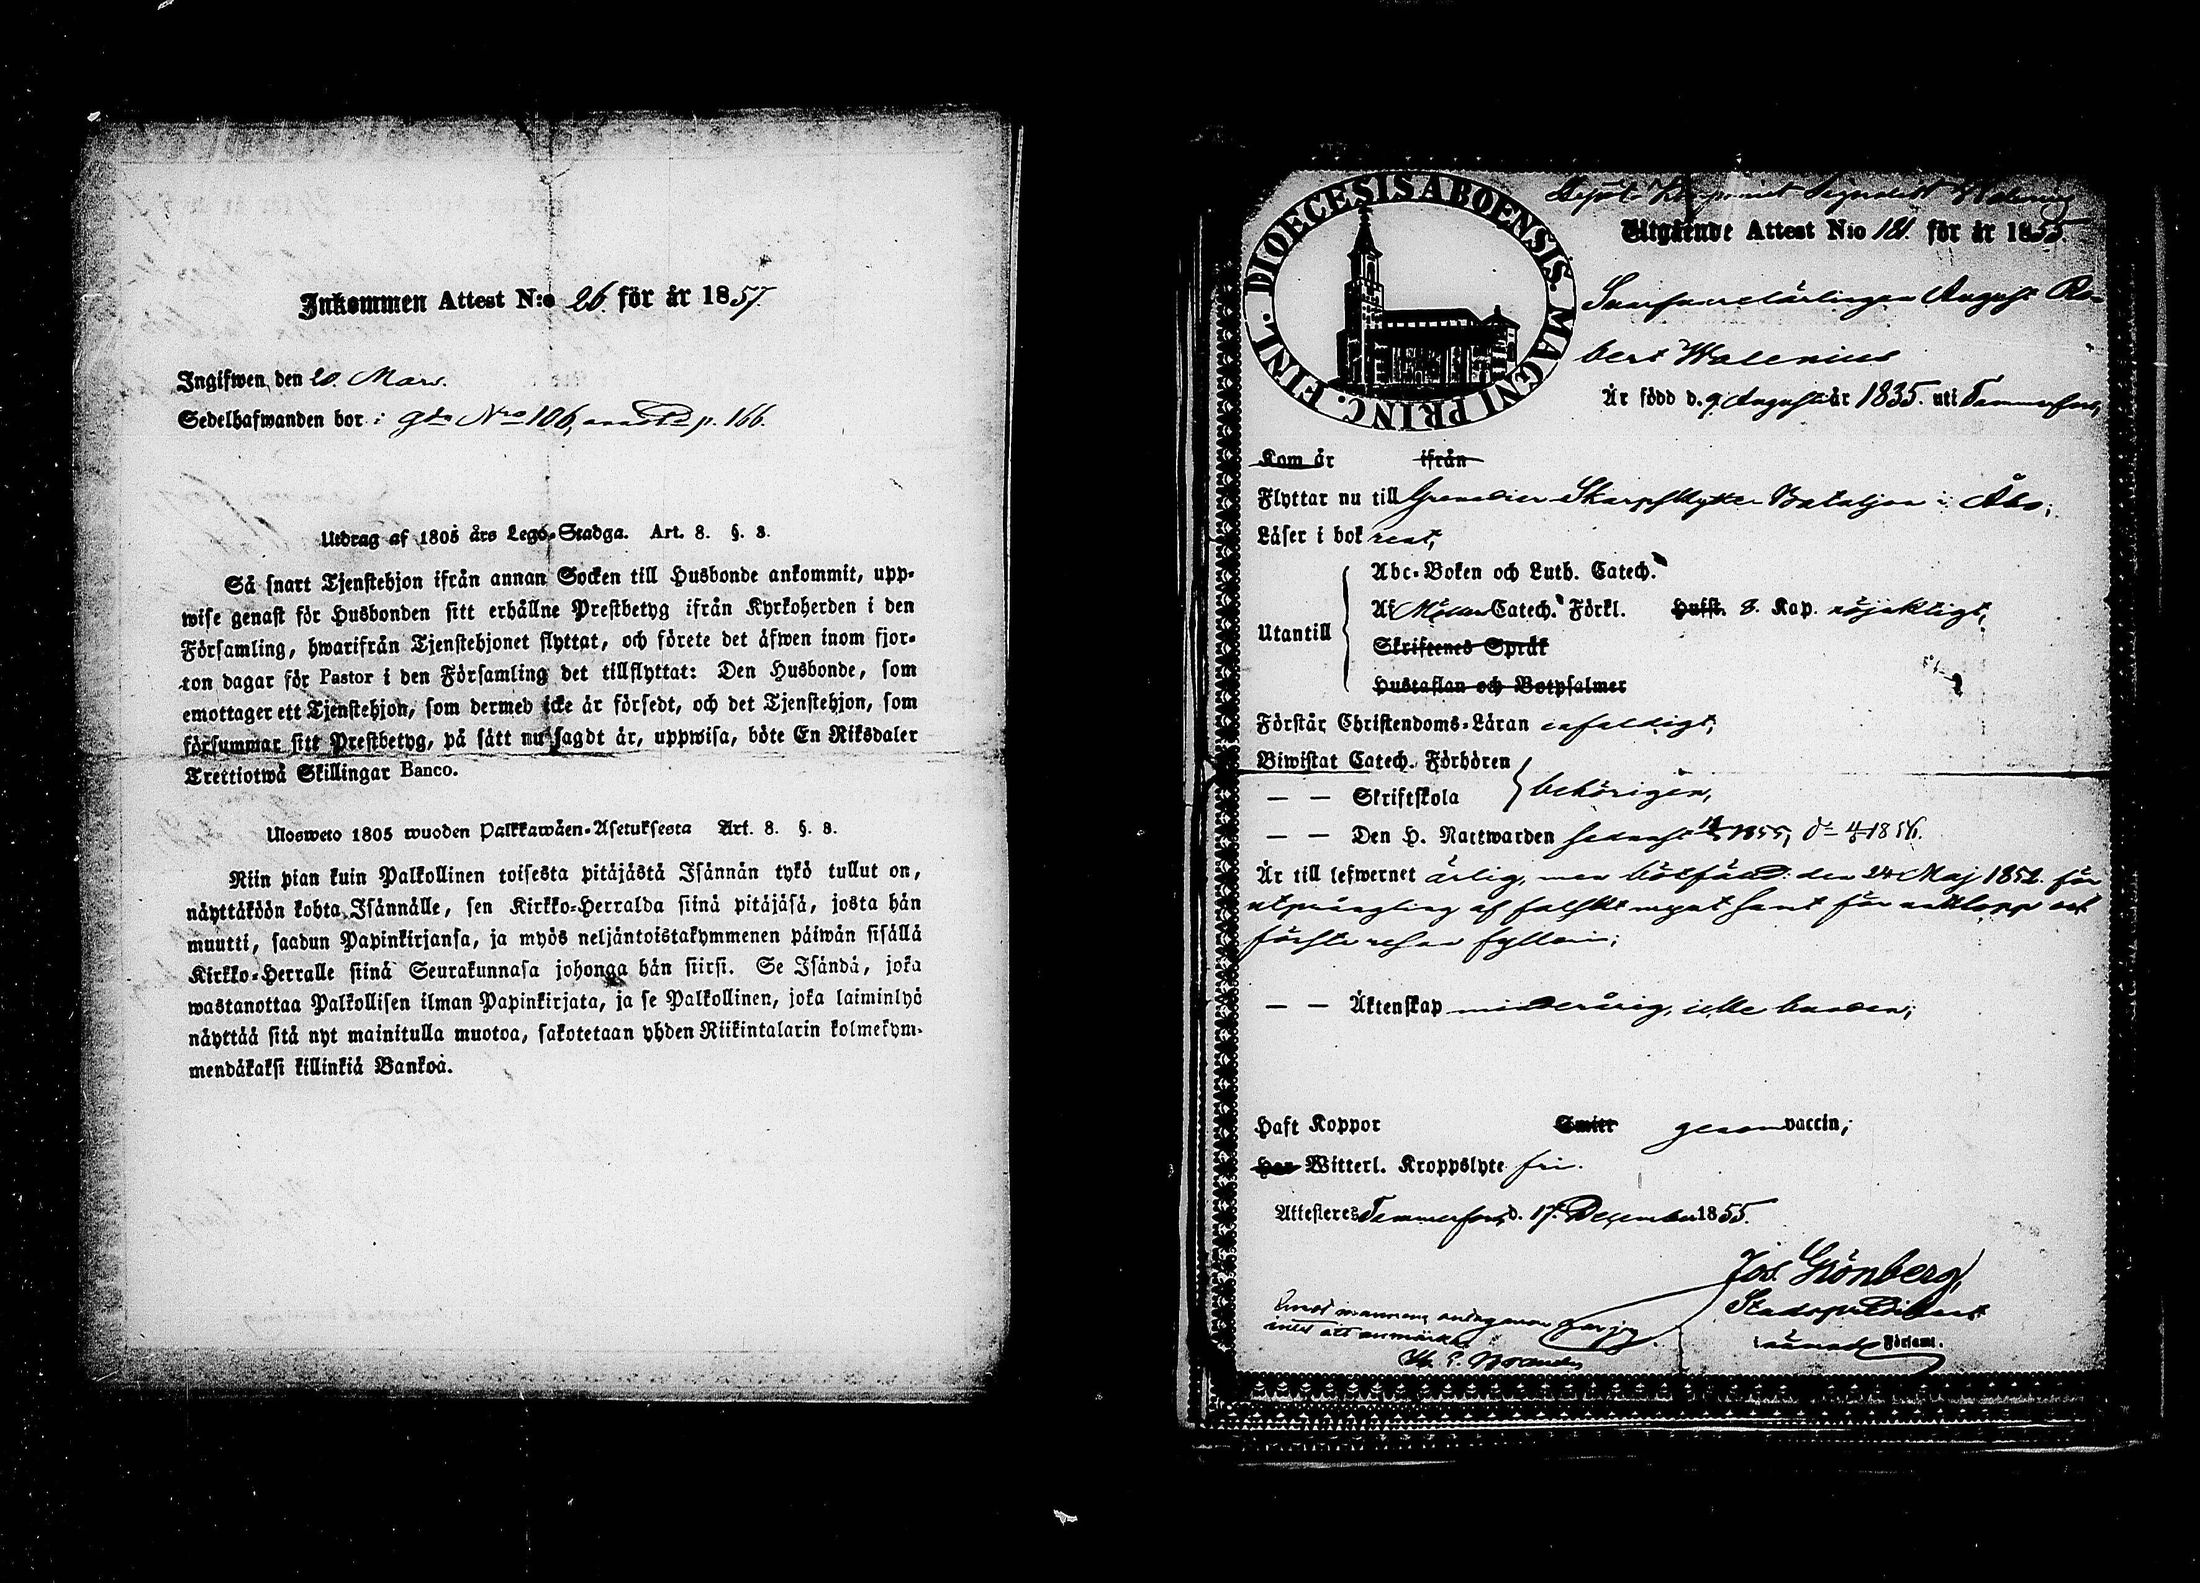 Inkommen Attest N:o 26. för år 1857.
Ingifwen den 20. Mars.
Sedelhafwanden bor i gdn Nro 106, p. 166.
Utdrag af 1805 års Lego-Stadga. Art. 8. §. 8.
Så snart Tjenstehjon ifrån annan Socken till Husbonde ankommit, upp-
wise genast för Husbonden sitt erhållne Prestbetyg ifrån Kyrkoherden i den
Församling, hwarifrån Tjenstehjonet flyttat, och förete det äfwen inom fjor-
ton dagar för Pastor i den Församling det tillflyttat: Den Husbonde, som
emottager ett Tjenstehjon, som dermed icke är försedt, och det Tjenstehjon, som
försummar sitt Prestbetyg, på sätt nu sagdt är, uppwisa, böte En Riksdaler
Trettiotwå Skillingar Banco.
Ulosweto 1805 wuoden Palkkawäen-Asetuksesta Art. 8. §. 8.
Niin pian kuin Palkollinen toisesta pitäjästä Isännän tykö tullut on,
näyttäköön kohta Isännälle, sen Kirkko-Herralda siinä pitäjäsä, josta hän
muutti, saadun Papinkirjansa, ja myös neljäntoistakymmenen päiwän sisällä
Kirkko-Herralle siinä Seurakunnasa johonga hän siirsi. Se Isändä, joka
wastanottaa Palkollisen ilman Papinkirjata, ja se Palkollinen, joka laiminlyö
näyttää sitä nyt mainitulla muotoa, sakotetaan yhden Riikintalarin kolmekym-
mendäkaksi killinkiä Bankoa.
FINL. DIOECESIS ABOENSIS. MAGNI PRINC.
Utgående Attest N:o 181. för år 1855.
August Ro-
bert Walenius
Är född d. 9. Augusti år 1835. uti Tammerfors,
Kom år ifrån
Flyttar nu till Grenadier Skarpskytte Bataljon i Åbo;
Läser i bok rent,
Abc-Boken och Luth. Catech.
Utantill
Af Möllers Catech. Förkl. Husst. 8. Kap. nöjaktigt,
Skriftenes Språk
Hustaflan och Botpsalmer
Förstår Christendoms-Läran enfaldigt,
Biwistat Catech. Förhören
— — Skriftskola behörigen,
— — Den H. Nattwarden senast 1855,
Är till lefwernet ärlig, men bötfäld den 24 Maj 1852. för
utprångling af falskt mynt samt för och
första resan fylleri;
— — Äktenskap minderårig, icke bunden;
Haft Koppor Smitt genom vaccin;
Har Witterl. Kroppslyte fri.
Attesteres Tammerfors d. 17. December 1855.
Jos. Grönberg,
Stadspredikant
i nämnde Förfaml.
intet att anmärka.